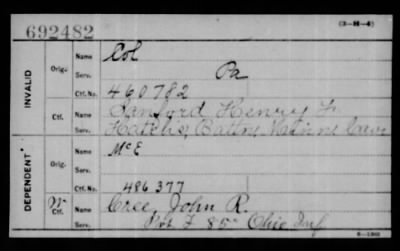 692482
(3-H-4)
INVALID
Orig.
Name
Col
Serv.
Pa
Ctf. No.
460782
Ctf.
Name
Sanford Henry
Serv.
Hatch's Battn. Minne Cav
DEPENDENT
Orig.
Name
McE
Serv.
Ctf. No.
486377
W
Ctf.
Name
Cree, John R.
Serv.
Pvt. F 85" Ohio Inf